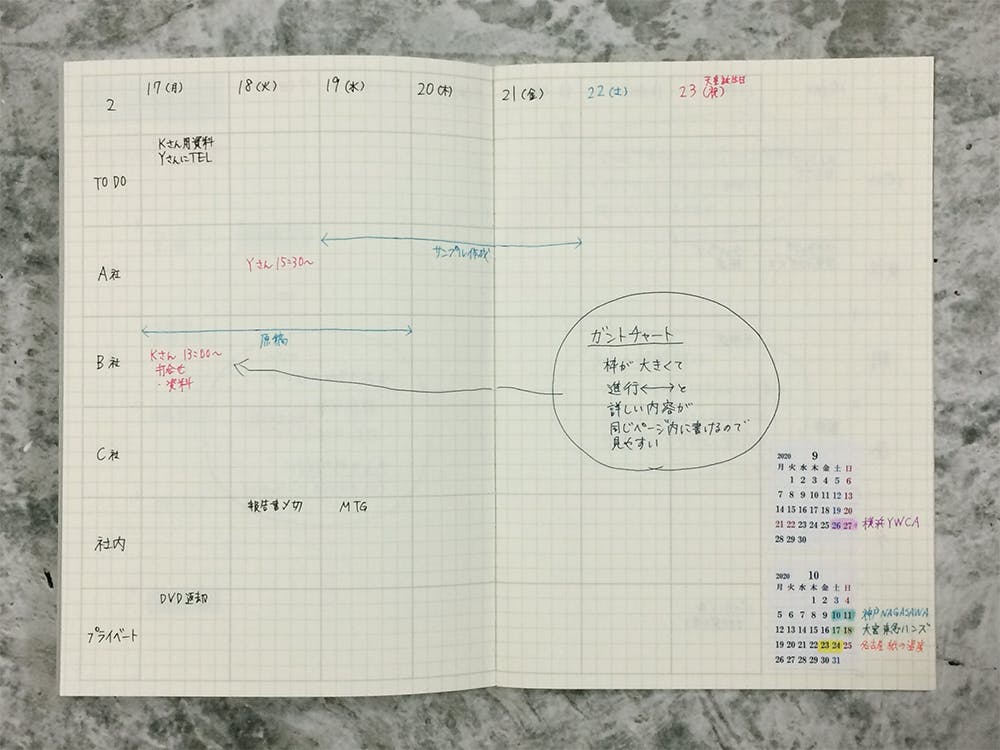 2
17(月)
18(火)
19(水)
20(木)
21(金)
22(土)
天皇誕生日
23(祝)
TO DO
Kさん用資料
YさんにTEL
A社
Yさん 15:30〜
サンプル作成
B社
原稿
Kさん 13:00〜
打合せ
・資料
ガントチャート
枠が大きくて
進行⟷と
詳しい内容が
同じページ内に書けるので
見やすい
C社
社内
報告書〆切
MTG
プライベート
DVD返却
2020 9
月 火 水 木 金 土 日
1 2 3 4 5 6
7 8 9 10 11 12 13
14 15 16 17 18 19 20
21 22 23 24 25 26 27 横浜YWCA
28 29 30
2020 10
月 火 水 木 金 土 日
1 2 3 4
5 6 7 8 9 10 11 神戸NAGASAWA
12 13 14 15 16 17 18 大宮東急ハンズ
19 20 21 22 23 24 25 名古屋 紙の温度
26 27 28 29 30 31